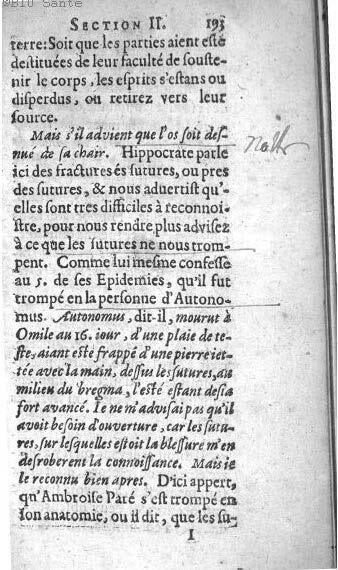 ©BIU Santé
SECTION II. 193
terre: Soit que les parties aient esté
destituées de leur faculté de souste-
nir le corps, les esprits s'estans ou
disperdus, ou retirez vers leur
source.
Mais s'il advient que l'os soit des-
nué de sa chair. Hippocrate parle
ici des fractures és sutures, ou pres
des sutures, & nous advertist qu'-
elles sont tres difficiles à reconnoi-
stre, pour nous rendre plus advisez
à ce que les sutures ne nous trom-
pent. Comme lui mesme confesse
au 5. de ses Epidemies, qu'il fut
trompé en la personne d'Autono-
mus. Autonomus, dit-il, mourut à
Omile au 16. iour, d'une plaie de te-
ste, aiant esté frappé d'une pierre iet-
tée avec la main, dessus les sutures, au
milieu du bregma, l'esté estant desia
fort avancé. Ie ne m'advisai pas qu'il
avoit besoin d'ouverture, car les sutu-
res, sur lesquelles estoit la blessure m'en
desroberent la connoissance. Mais ie
le reconnu bien apres. D'ici appert,
qu'Ambroise Paré s'est trompé en
son anatomie, ou il dit, que les su-
I